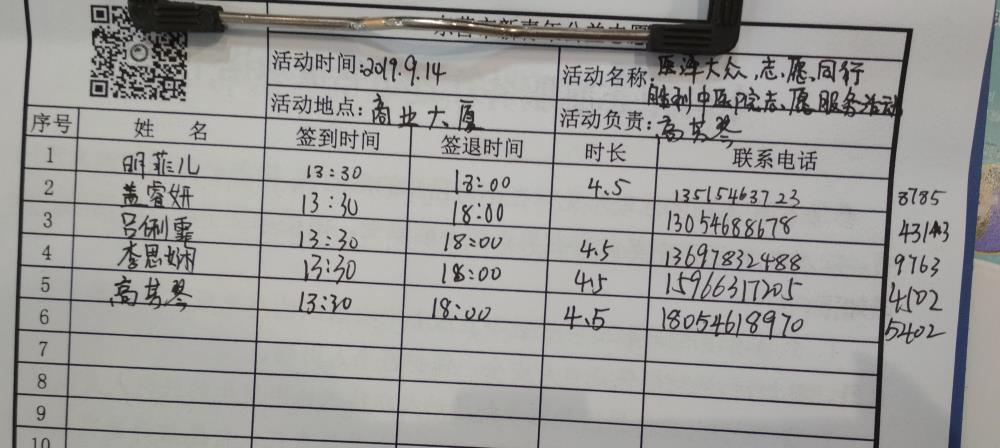 活动时间:2019.9.14
活动名称:医泽大众,志愿同行
胜利中医院志愿服务活动
活动地点:商业大厦
活动负责:高其琴
序号 姓名 签到时间 签退时间 时长 联系电话
1 明菲儿 13:30 18:00 4.5 13515463723 8785
2 盖睿妍 13:30 18:00 13054688678 4313
3 吕俐霏 13:30 18:00 4.5 13697832488 9763
4 李思娴 13:30 18:00 4.5 15966317205 4502
5 高其琴 13:30 18:00 4.5 18054618970 5202
6
7
8
9
10